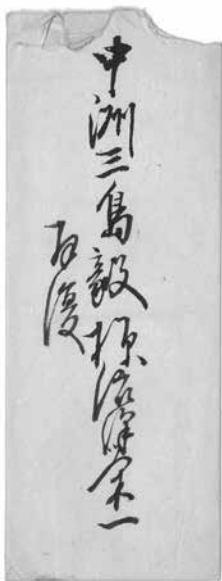 中洲三島毅様 渋澤栄一
拝復